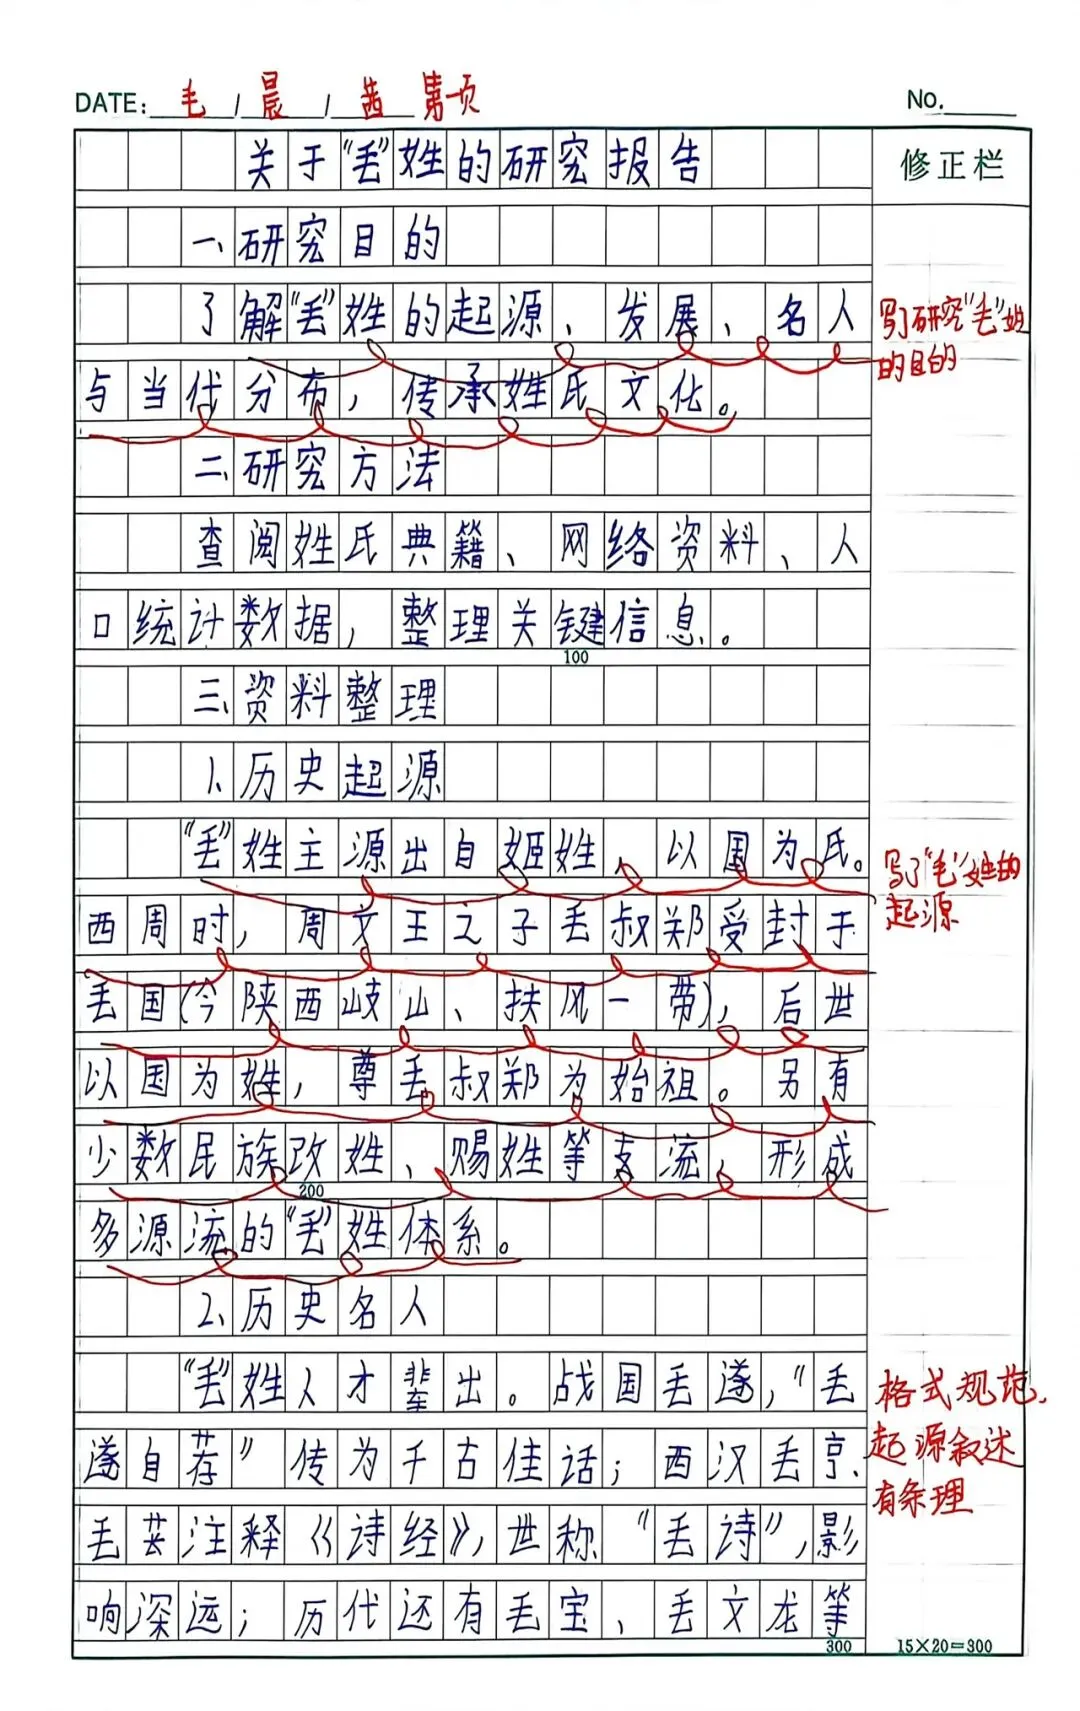 DATE: 毛 / 晨 / 茜 第一页 No.
关于“毛”姓的研究报告
修正栏
一、研究目的
了解“毛”姓的起源、发展、名人
与当代分布，传承姓氏文化。
写了研究“毛”姓
的目的
二、研究方法
查阅姓氏典籍、网络资料、人
口统计数据，整理关键信息。
100
三、资料整理
1、历史起源
“毛”姓主源出自姬姓，以国为氏。
西周时，周文王之子毛叔郑受封于
毛国(今陕西岐山、扶风一带)，后世
以国为姓，尊毛叔郑为始祖。另有
少数民族改姓、赐姓等支流，形成
200
多源流的“毛”姓体系。
写了“毛”姓的
起源
2、历史名人
“毛”姓人才辈出。战国毛遂，“毛
遂自荐”传为千古佳话；西汉毛亨、
毛苌注释《诗经》，世称“毛诗”，影
响深远；历代还有毛宝、毛文龙等
格式规范，
起源叙述
有条理
300
15×20=300